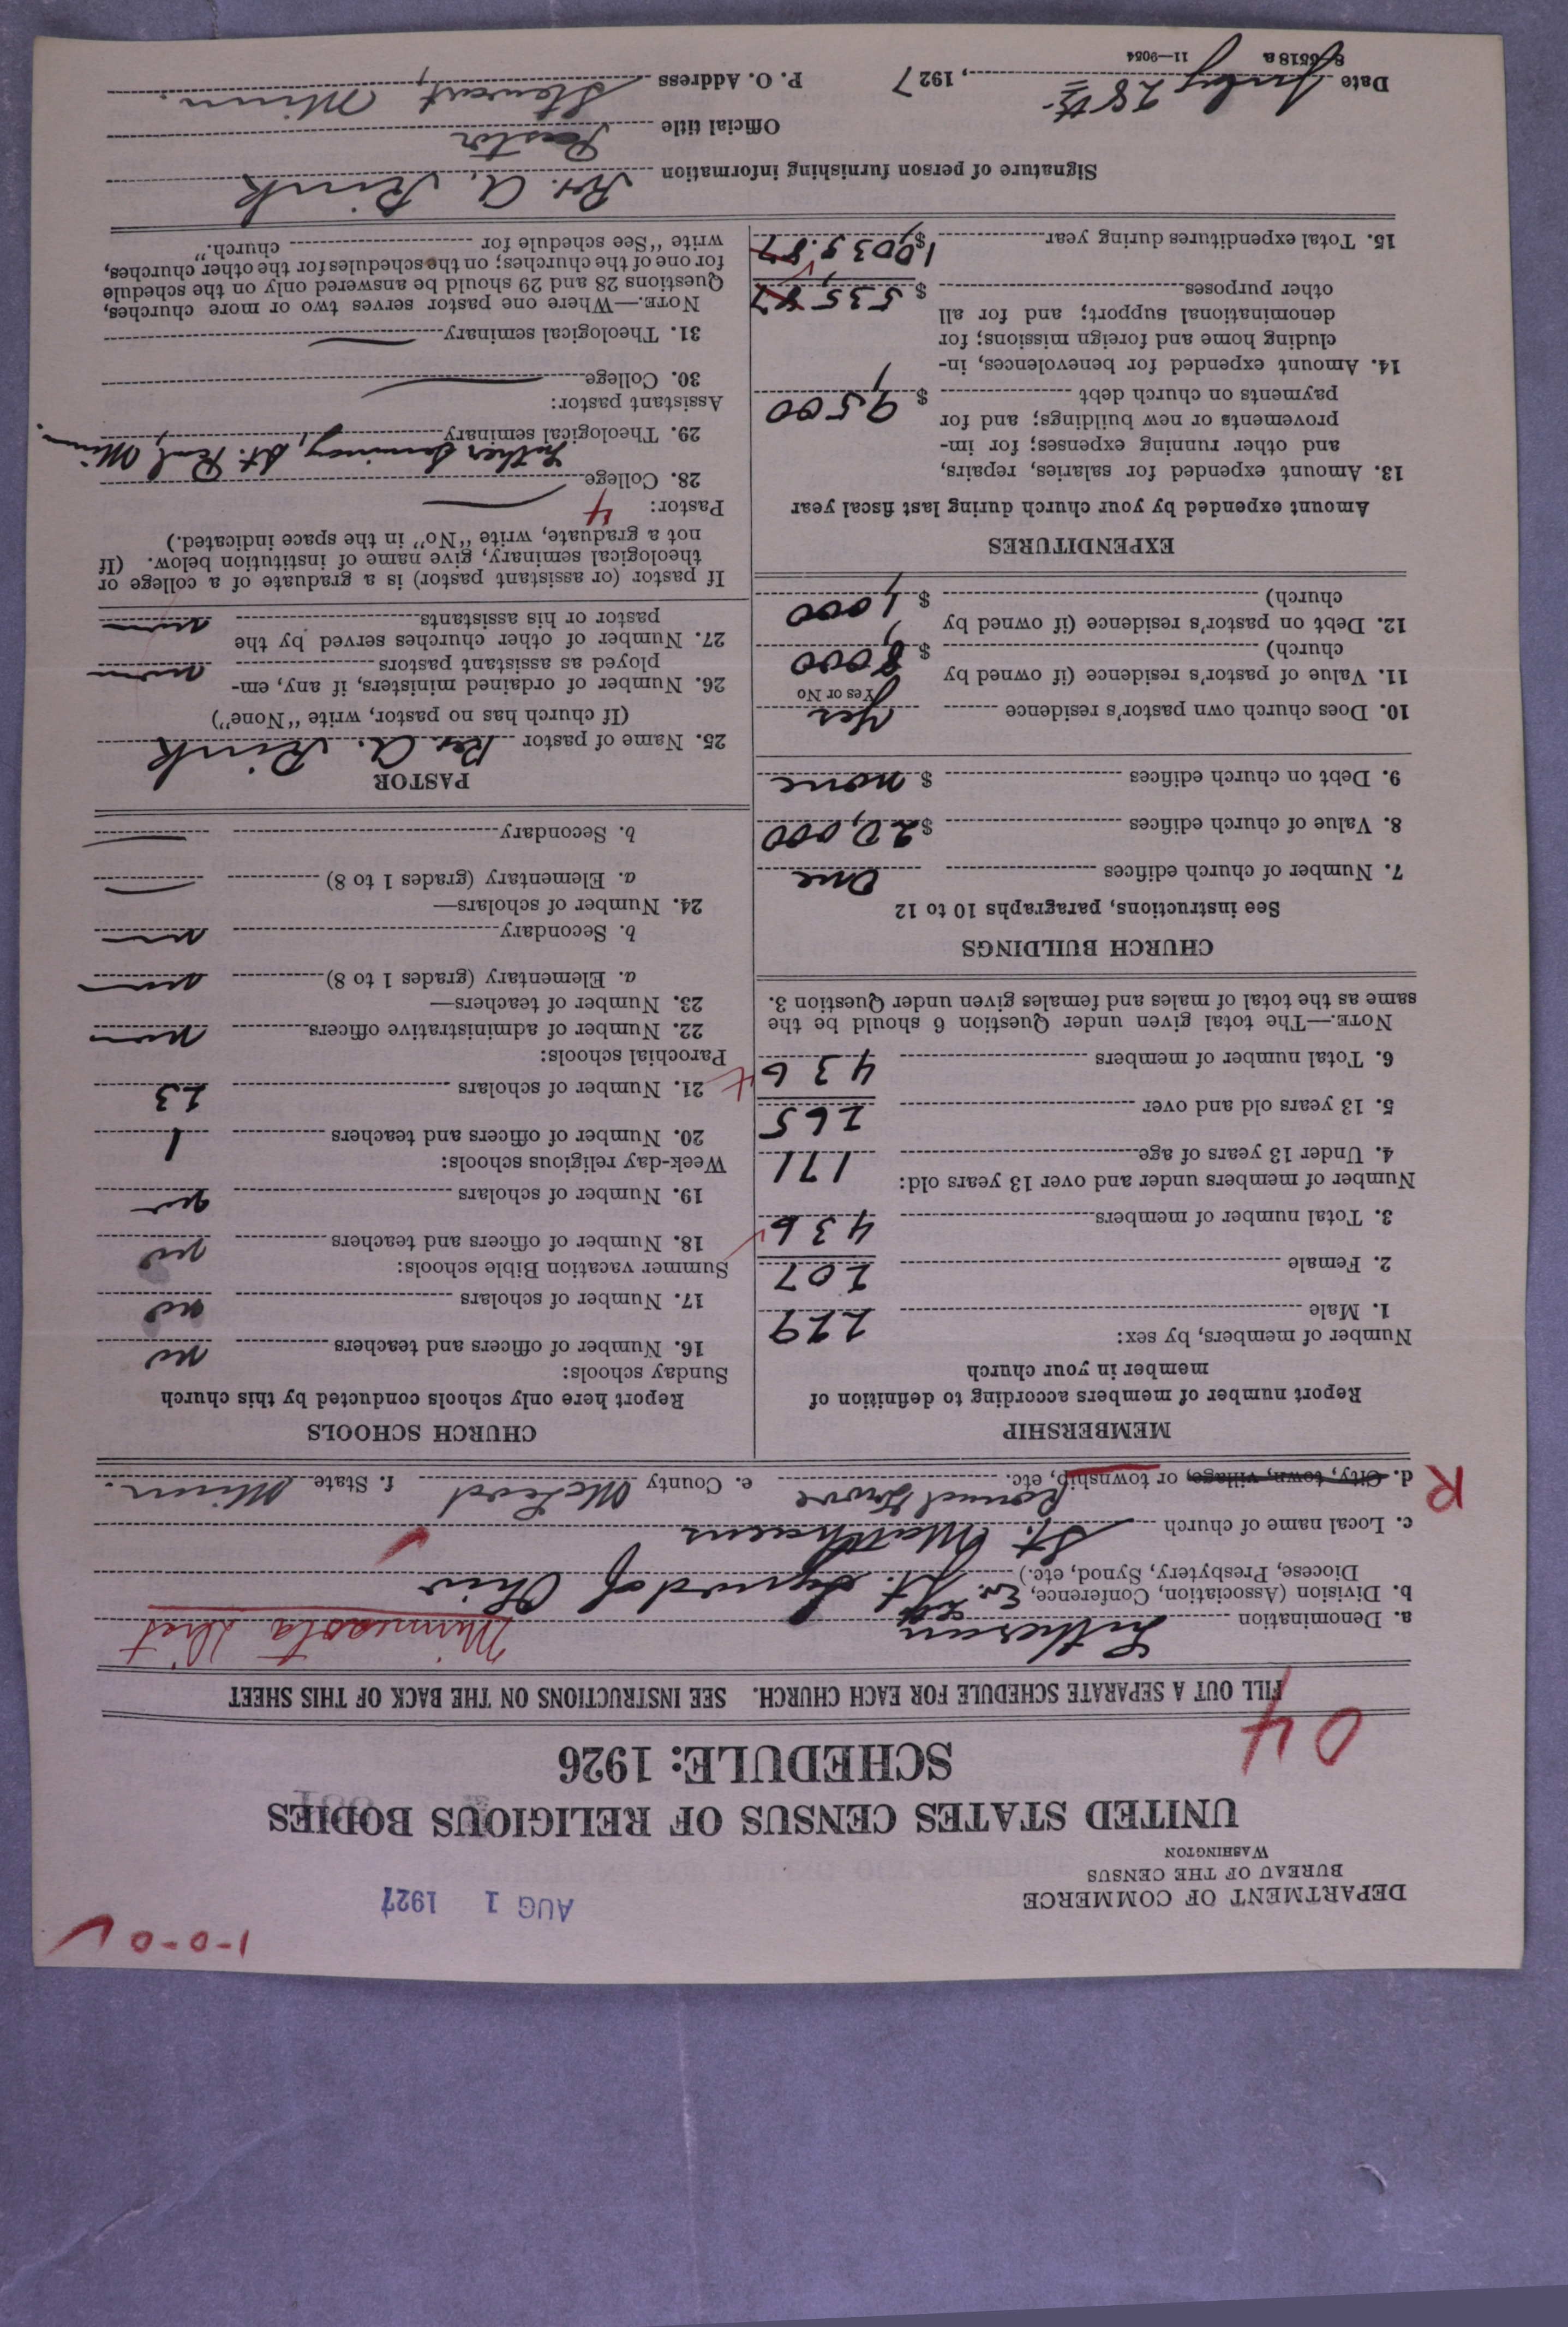 1-0-0 ✓
DEPARTMENT OF COMMERCE
BUREAU OF THE CENSUS
WASHINGTON
AUG 1 1927
UNITED STATES CENSUS OF RELIGIOUS BODIES
SCHEDULE: 1926
04
FILL OUT A SEPARATE SCHEDULE FOR EACH CHURCH. SEE INSTRUCTIONS ON THE BACK OF THIS SHEET
a. Denomination Lutheran Minnesota Dist
b. Division (Association, Conference, Diocese, Presbytery, Synod, etc.) Ev. Luth. Jt. Synod of Ohio
c. Local name of church St. Matthaeus
R d. City, town, village, or township, etc. Round Grove e. County McLeod f. State Minn.
MEMBERSHIP
Report number of members according to definition of
member in your church
Number of members, by sex:
1. Male 229
2. Female 207
3. Total number of members 436
Number of members under and over 13 years old:
4. Under 13 years of age 171
5. 13 years old and over 265
6. Total number of members 436
NOTE.—The total given under Question 6 should be the
same as the total of males and females given under Question 3.
CHURCH BUILDINGS
See instructions, paragraphs 10 to 12
7. Number of church edifices One
8. Value of church edifices $20,000
9. Debt on church edifices $ none
10. Does church own pastor's residence Yes
Yes or No
11. Value of pastor's residence (if owned by
church) $ 8,000
12. Debt on pastor's residence (if owned by
church) $ 1,000
EXPENDITURES
Amount expended by your church during last fiscal year
13. Amount expended for salaries, repairs,
and other running expenses; for im-
provements or new buildings; and for
payments on church debt $ 9,500
14. Amount expended for benevolences, in-
cluding home and foreign missions; for
denominational support; and for all
other purposes $ 535.87
15. Total expenditures during year $
CHURCH SCHOOLS
Report here only schools conducted by this church
Sunday schools:
16. Number of officers and teachers no
17. Number of scholars no
Summer vacation Bible schools:
18. Number of officers and teachers no
19. Number of scholars no
Week-day religious schools:
20. Number of officers and teachers 1
21. Number of scholars 23
Parochial schools:
22. Number of administrative officers none
23. Number of teachers—
a. Elementary (grades 1 to 8)
b. Secondary
24. Number of scholars—
a. Elementary (grades 1 to 8) —
b. Secondary —
PASTOR
25. Name of pastor Rev. A. Rink
(If church has no pastor, write "None")
26. Number of ordained ministers, if any, em-
ployed as assistant pastors none
27. Number of other churches served by the
pastor or his assistants none
If pastor (or assistant pastor) is a graduate of a college or
theological seminary, give name of institution below. (If
not a graduate, write "No" in the space indicated.)
Pastor: 4
28. College —
29. Theological seminary Luther Seminary, St. Paul, Minn.
Assistant pastor:
30. College —
31. Theological seminary —
NOTE.—Where one pastor serves two or more churches,
Questions 28 and 29 should be answered only on the schedule
for one of the churches; on the schedules for the other churches,
write "See schedule for church."
Signature of person furnishing information Rev. A. Rink
Official title Pastor
Date July 28th, 1927 P. O. Address Stewart, Minn.
8-5518 a 11—9054